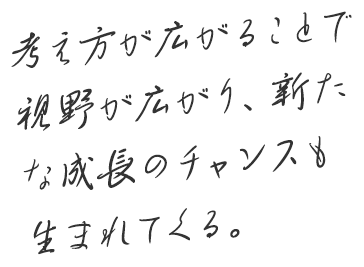 考え方が広がることで
視野が広がり、新た
な成長のチャンスも
生まれてくる。